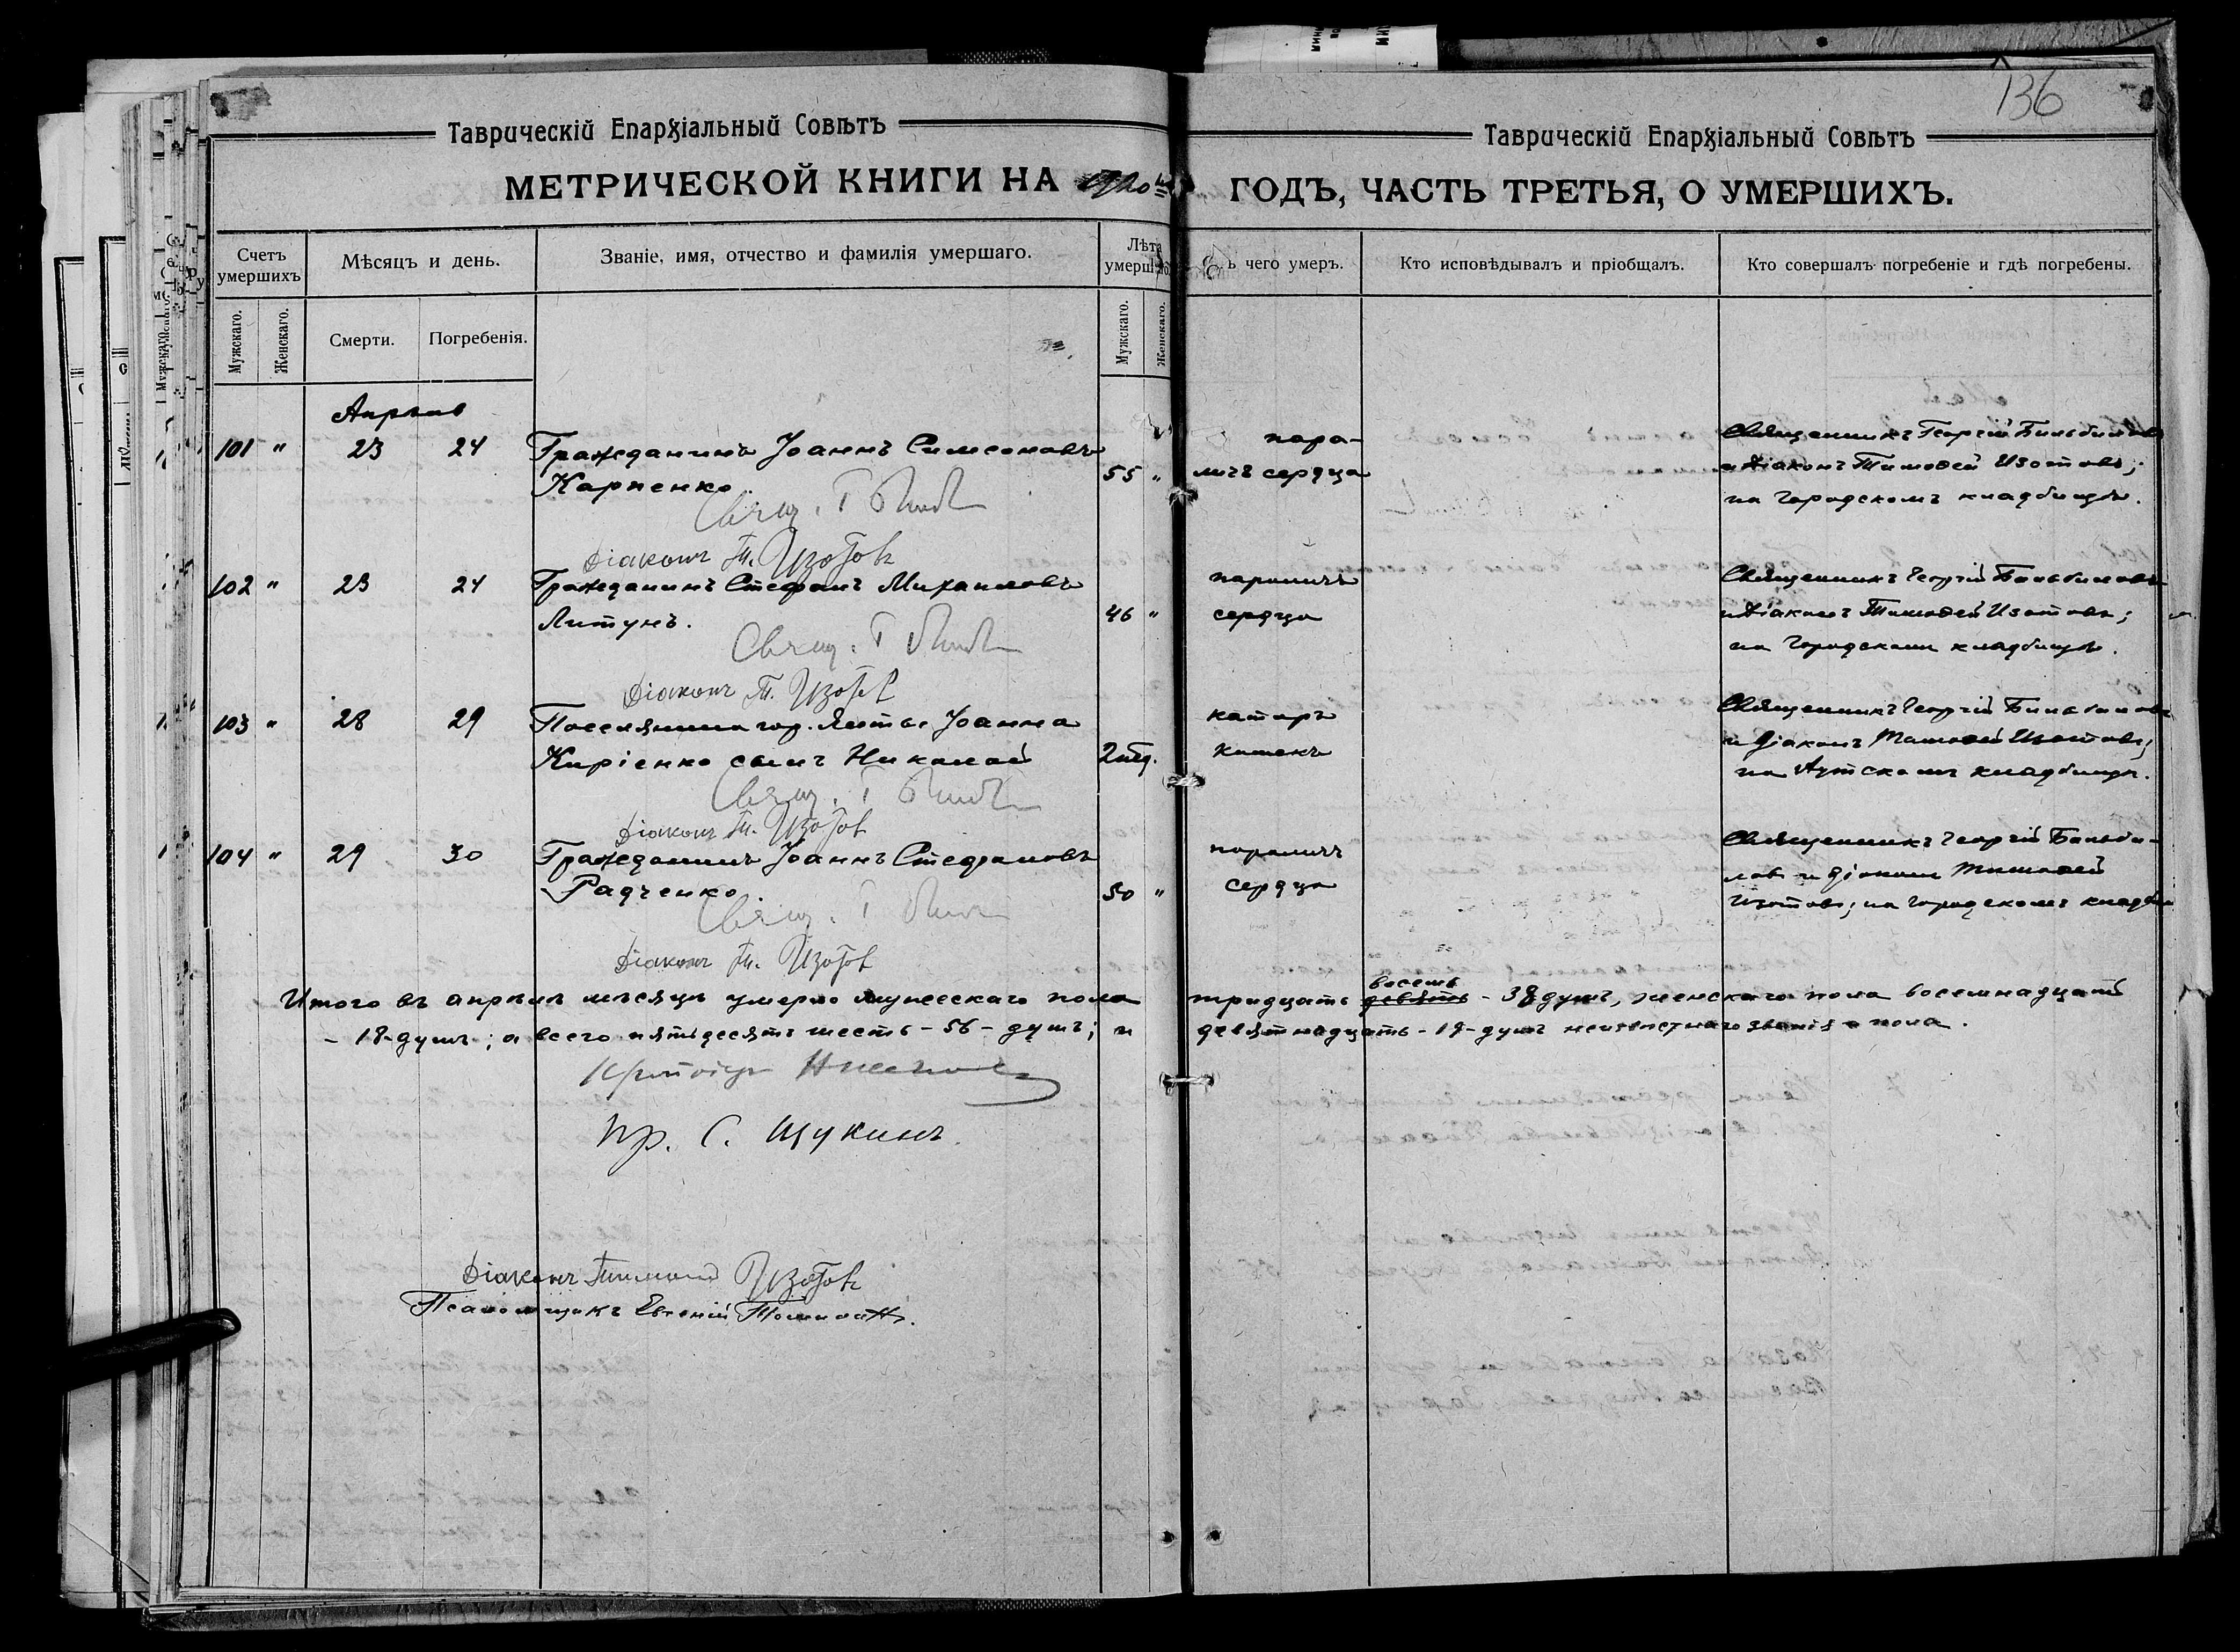 136
Таврическій Епархіальный Совѣтъ
Таврическій Епархіальный Совѣтъ
МЕТРИЧЕСКОЙ КНИГИ НА 1920
ГОДЪ, ЧАСТЬ ТРЕТЬЯ, О УМЕРШИХЪ.
Счетъ умершихъ
Мѣсяцъ и день.
Званіе, имя, отчество и фамилія умершаго.
Лѣта
ь чего умеръ.
Кто исповѣдывалъ и пріобщалъ.
Кто совершалъ погребеніе и гдѣ погребены.
Мужскаго.
Женскаго.
Смерти.
Погребенія.
Мужскаго.
Женскаго.
Апрѣль
101 " 23 24 Гражданинъ Іоаннъ Симеоновъ пара- Священникъ Георгій
Карпенко. 55 " личъ сердца и Діаконъ Тимофей Изотовъ;
на городскомъ кладбищѣ.
Свящ. Г
Діаконъ Т. Изотов
102 " 23 24 Гражданинъ Стефанъ Михаиловъ параличъ Священникъ Георгій
Литунъ. 46 " сердца и Діаконъ Тимофей Изотовъ;
на городскомъ кладбищѣ.
Свящ. Г
Діаконъ Т. Изотов
103 " 28 29 Поселянина гор. Ялты Іоанна катаръ Священникъ Георгій
Киріенко сынъ Николай кишекъ и діаконъ Тимофей Изотовъ;
на Аутскомъ кладбищѣ.
Свящ. Г
Діаконъ Т. Изотов
104 " 29 30 Гражданинъ Іоаннъ Стефановъ параличъ Священникъ Георгій
Радченко. 50 " сердца и діаконъ Тимофей
Изотовъ; на городскомъ
Свящ. Г
Діаконъ Т. Изотов
восемь
Итого въ апрѣлѣ мѣсяцѣ умерло мужескаго пола тридцать девять - 38 душъ, женскаго пола восемнадцать
- 18 - душъ; а всего пятьдесятъ шесть - 56 - душъ; и девятнадцать - 19 - душъ неизвѣстнаго званія и пола.
Пр. С. Щукинъ.
Діаконъ Тимофей Изотов
Псаломщикъ Евгеній